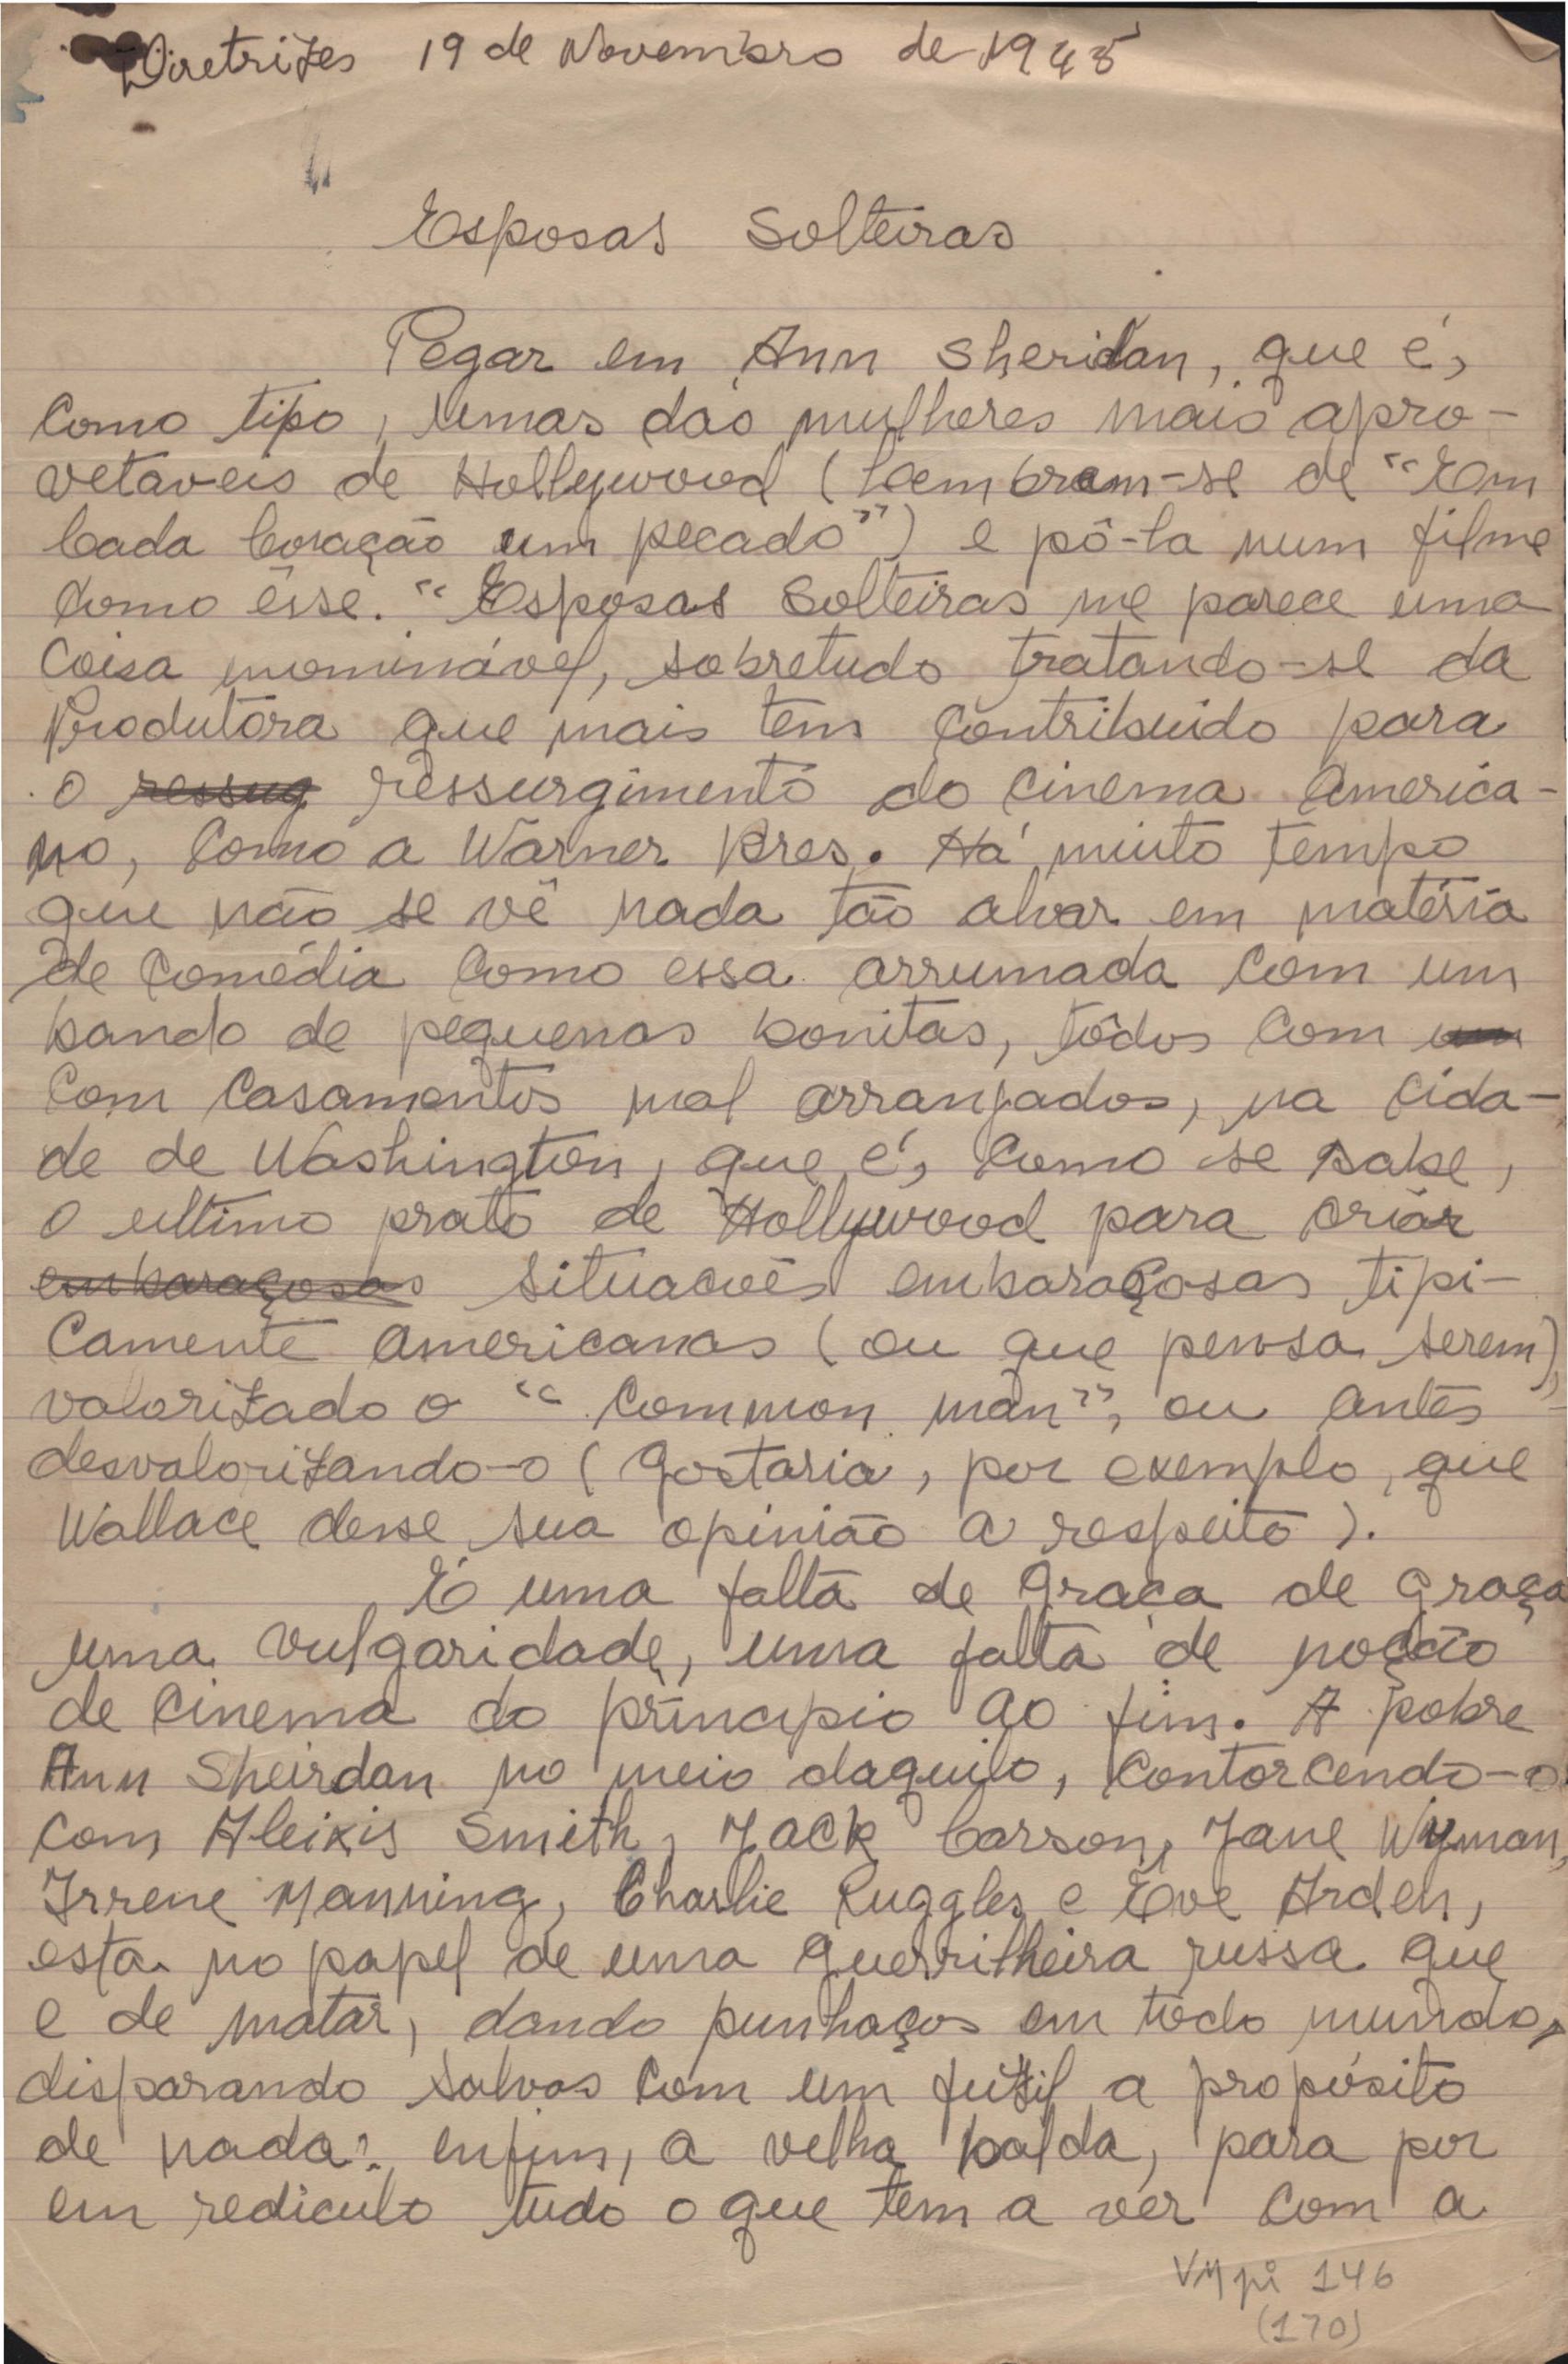 Diretrizes 19 de Novembro de 1945
Esposas Solteiras
Pegar em Ann Sheridan, que é,
como tipo, umas das mulheres mais apro-
vetaveis de Hollywood (Lembram-se de "Em
Cada Coração um pecado") e pô-la num filme
como êsse. "Esposas Solteiras me parece uma
Coisa inominável, sobretudo tratando-se da
Produtôra que mais tem Contribuido para
o ressug ressurgimento do cinema America-
no, Como a Warner Bros. Há muito tempo
que não se vê nada tão alvar em matéria
de Comédia Como essa arrumada com um
bando de pequenas bonitas, tôdos Com um
Com Casamentos mal arranjados, na Cida-
de de Washington, que é, Como se sabe,
o ultimo prato de Hollywood para criar
embaraçosas situacoês embaraçosas tipi-
Camente Americanas (ou que pensa serem),
valorizado o "Common man", ou antes
desvalorizando-o (Gostaria, por exemplo, que
Wallace desse sua opinião a respeito).
É uma falta de graça de graça
uma vulgaridade, uma falta de noção
de cinema do principio ao fim. A pobre
Ann Sheirdan no meio daquilo, Contorcendo-o
com Aleixis Smith, Jack Carson, Jane Wyman,
Irrene Manning, Charlie Ruggles e Eve Arden,
esta no papel de uma guerrilheira russa que
e de matar, dando punhaços em todo mundo,
disparando salvas Com um fuzil a propósito
de nada: enfim, a velha balda, para por
em rediculo tudo o que tem a ver Com a
VMpi 146
(170)